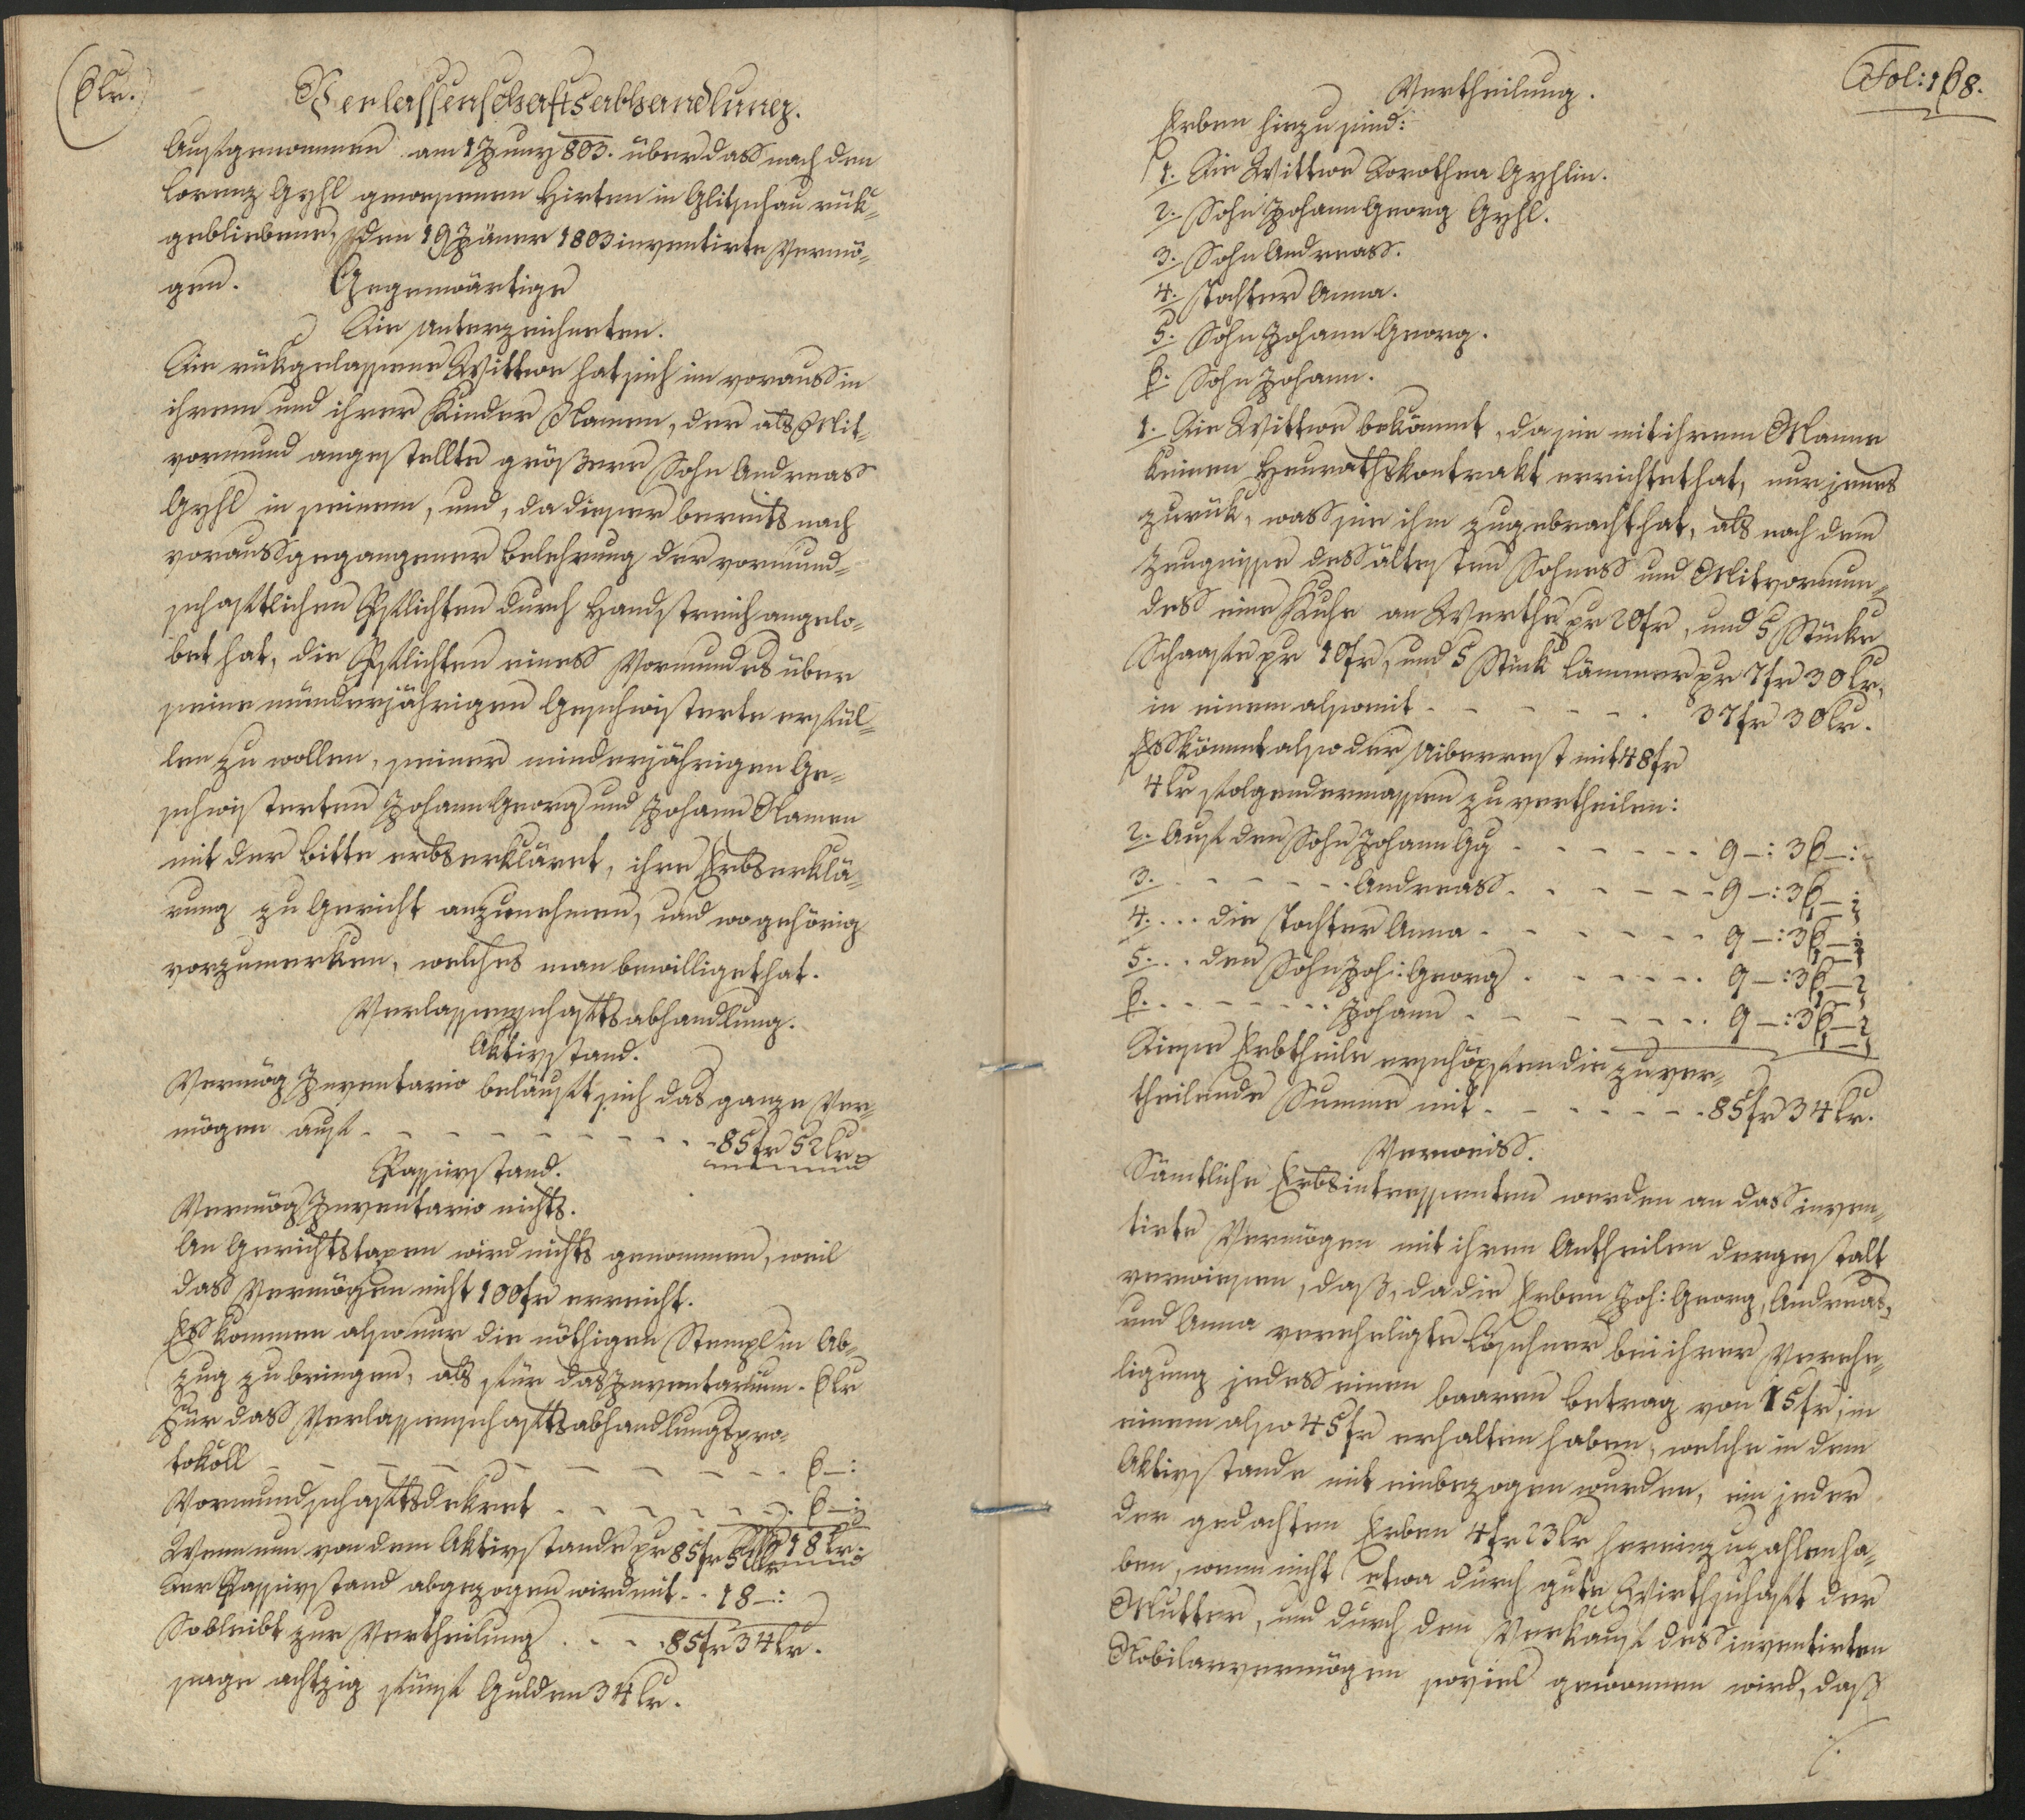 6 kr.
Verlassenschaftsabhandlung.
Aufgenommen am 1 Juny 803. über dass nach den
Lorenz Gyhl gewesenen Hirten in Glitschau rük-
gebliebene, den 19 Jäner 1803 inventirte Vermö-
gen. Gegenwärtige
Die Unterzeichneten.
Die rükgelassene Wittwe hat sich im vorauss in
ihrem und ihrer Kinder Namen, der als Mit-
vormund angestellte größere Sohn Andreass
Gyhl in seinem, und, da dieser bereits nach
voraussgegangener Belehrung der vormund-
schaftlichen Pflichten durch Handstreich angelo-
bet hat, die Pflichten einess Vormundes über
seine münderjährigen Geschwisterte erfül-
len zu wollen, seiner minderjährigen Ge-
schwisterten Johann Georg und Johann Namen
mit der Bitte erbserkläret, ihre Erbserklä-
rung zu Gericht anzunehmen, und wo gehörig
vorzumerken, welches man bewilliget hat.
Verlassenschaftsabhandlung.
Aktivstand.
Vermög Inventario beläuft sich das ganze Ver-
mögen auf - - - - - - - - - 85 fr 52 kr
Passivstand.
Vermög Inventario nichts.
An Gerichtstaxen wird nichts genommen, weil
dass Vermögen nicht 100 fr erreicht.
Ess kommen also nur die nöthigen Stempl in Ab-
zug zu bringen, als für das Inventarium . 6 kr
Für dass Verlassenschaftsabhandlungspro-
tokoll - - - - - - - - - - 6 –:
Vormundschaftsdekret - - - - - - 6 –:
18 kr
Wenn nun von dem Aktivstande pr 85 fr 52 kr
der Passivstand abgezogen wird mit . . 18 –:
So bleibt zur Vertheilung . - - . 85 fr 34 kr.
sage achtzig fünf Gulden 34 kr.
Fol: 168.
Vertheilung.
Erben hiezu sind:
1. Die Wittwe Dorothea Gyhlin.
2. Sohn Johann Georg Gyhl.
3. Sohn Andreass.
4. Tochter Anna.
5. Sohn Johann Georg.
6. Sohn Johann.
1. Die Wittwe bekömmt, da sie mit ihrem Manne
keinen Heurathskontrakt errichtet hat, nur jenes
zurük, wass sie ihm zugebracht hat, als nach dem
Zeugnisse dess ältesten Sohness und Mitvormun-
dess eine Kuhe an Werthe pr 20 fr, und 5 Stücke
Schaafe pr 10 fr, und 5 Stük Lämmer pr 7 fr 30 kr,
in einem also mit - - - - - - . 37 fr 30 kr.
Ess kömmt also der Uiberrest mit 48 fr
4 kr folgendermassen zu vertheilen:
2. Auf den Sohn Johann Gg . - - - - - . 9 –: 36 –:
3. - - - - - Andreass. - - - - - 9 –: 36 –:
4. ... die Tochter Anna - - - - - - 9 –: 36 –:
5. ... den Sohn Joh: Georg . - - - - . 9 –: 36 –
6. - - - - - - Johann - - - - - - . 9 –: 36 –
Diese Erbtheile erschöpfen die zu ver-
theilende Summe mit - - - - - - . 85 fr 34 kr.
Verweiss.
Sämtliche Erbsintressenten werden an dass inven-
tirte Vermögen mit ihren Antheilen dergestalt
verwiesen, daß, da die Erben Joh: Georg, Andreas,
und Anna verehligte Löschner bei ihrer Verehe-
ligung jedess einen baaren Betrag von 15 fr, in
einem also 45 fr erhalten haben, welche in dem
Aktivstande mit einbezogen wurden, ein jeder
der gedachten Erben 4 fr 23 kr hereinzuzahlen ha-
ben, wenn nicht etwa durch gute Wirthschaft der
Mutter, und durch den Verkauf dess inventirten
Mobilarvermögen soviel gewonnen wird, daß